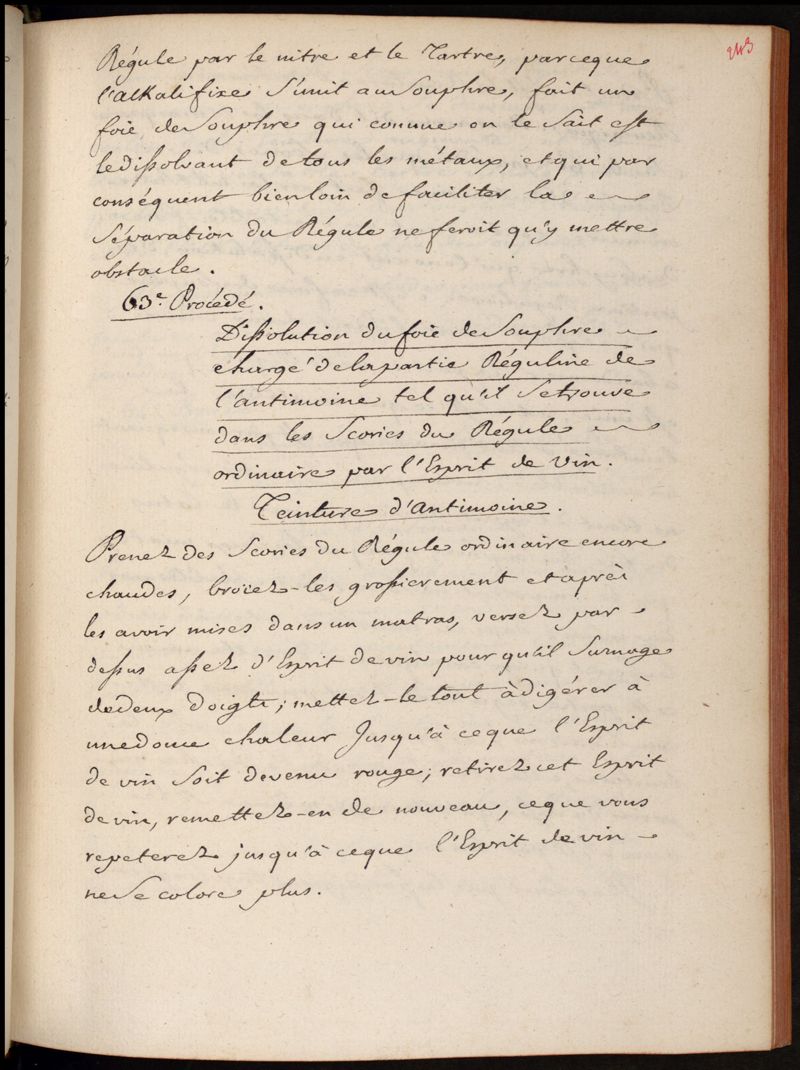 243
Régule par le nitre et le Tartre, parceque
l'alKalifixe s'unit au Souphre, fait un
foie de Souphre qui comme on le Sait est
le dissolvant de tous les métaux, et qui par
conséquent bien loin de faciliter la
Séparation du Régule ne feroit qu'y mettre
obstacle.
63e Procédé.
Dissolution du foie de Souphre
chargé de la partie Réguline de
l'antimoine tel qu'il Se trouve
dans les Scories du Régule
ordinaire par l'Esprit de Vin.
Teinture d'Antimoine.
Prenez des Scories du Régule ordinaire encore
chaudes, broïez-les grossierement et après
les avoir mises dans un matras, versez par
dessus assez d'Esprit de vin pour qu'il Surnage
de deux doigts; mettez-le tout à digérer à
une douce chaleur Jusqu'à ce que l'Esprit
de vin Soit devenu rouge; retirez cet Esprit
de vin, remettez-en de nouveau, ce que vous
repeterez jusqu'à ce que l'Esprit de vin
ne Se colore plus.